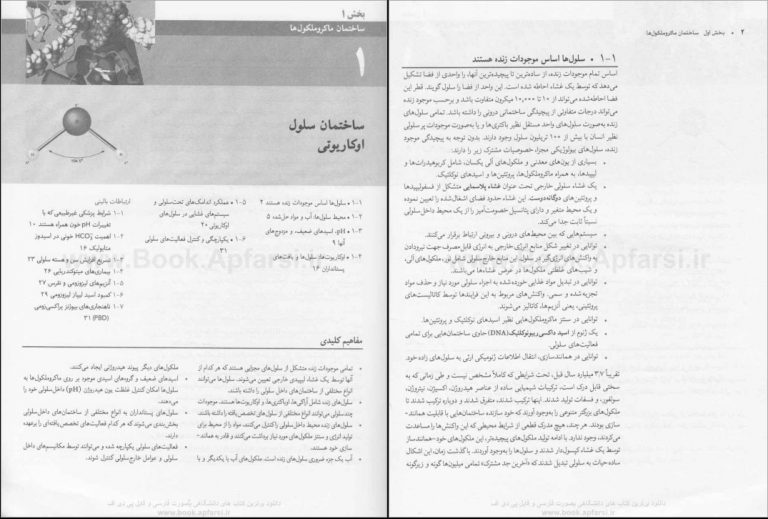 بخش ۱
ساختمان ماکروملکول‌ها
۱
ساختمان سلول
اوکاریوتی
۱-۱ • سلول‌ها اساس موجودات زنده هستند ۲
۱-۲ • محیط سلول‌ها: آب و مواد حل‌شده ۵
۱-۳ • pH، اسیدهای ضعیف، و مزدوج‌های
آنها ۹
۱-۴ • اوکاریوت‌ها: سلول‌ها و بافت‌های
پستانداران ۱۶
۱-۵ • عملکرد اندامک‌های تحت‌سلولی و
سیستم‌های غشایی در سلول‌های
اوکاریوتی ۲۰
۱-۶ • یکپارچگی و کنترل فعالیت‌های سلولی
۳۱
ارتباطات بالینی
۱-۱ شرایط پزشکی غیرطبیعی که با
تغییرات pH خون همراه هستند ۱۰
۱-۲ اهمیت HCO₃⁻ خونی در اسیدوز
متابولیک ۱۶
۱-۳ تسریع افزایش سن و هسته سلولی ۲۳
۱-۴ بیماری‌های میتوکندریایی ۲۶
۱-۵ آنزیم‌های لیزوزومی و نقرس ۲۷
۱-۶ کمبود اسید لیپاز لیزوزومی ۲۹
۱-۷ ناهنجاری‌های بیوژنز پراکسی‌زومی
(PBD) ۳۱
مفاهیم کلیدی
• تمامی موجودات زنده متشکل از سلول‌های مجزایی هستند که هر کدام از
آنها توسط یک غشاء لیپیدی خارجی تعیین می‌شوند. سلول‌ها می‌توانند
انواع مختلفی از ساختمان‌های داخل سلولی را داشته باشند.
• سلول‌های زنده شامل آرکی‌ها، اوباکتری‌ها، و اوکاریوت‌ها هستند. موجودات
چند سلولی می‌توانند انواع مختلفی از سلول‌های تخصص‌یافته را داشته باشند.
• سلول‌های زنده محیط داخل سلولی را کنترل می‌کنند، مواد را از محیط برای
تولید انرژی و سنتز ملکول‌های مورد نیاز برداشت می‌کنند و قادر به همانند-
سازی خود هستند.
• آب یک جزء ضروری سلول‌های زنده است. ملکول‌های آب با یکدیگر و با
ملکول‌های دیگر پیوند هیدروژنی ایجاد می‌کنند.
• اسیدهای ضعیف و گروه‌های اسیدی موجود بر روی ماکروملکول‌ها به
سلول‌ها امکان کنترل غلظت یون هیدروژن (pH) داخل سلولی خود را
می‌دهند.
• سلول‌های پستانداران به انواع مختلفی از ساختمان‌های داخل‌سلولی
بخش‌بندی می‌شوند که هر کدام فعالیت‌های تخصص یافته‌ای را برعهده
دارند.
• فعالیت‌های سلولی یکپارچه شده و می‌توانند توسط مکانیسم‌های داخل
سلولی و عوامل خارج سلولی کنترل شوند.
www.Book.Apfarsi.ir
دانلود برترین کتاب های دانشگاهی بصورت فارسی و فایل پی دی اف
www.book.apfarsi.ir
۲ • بخش اول ساختمان ماکروملکول‌ها
۱-۱ • سلول‌ها اساس موجودات زنده هستند
اساس تمام موجودات زنده، از ساده‌ترین تا پیچیده‌ترین آنها، را واحدی از فضا تشکیل
می‌دهد که توسط یک غشاء احاطه شده است. این واحد از فضا را سلول گویند. قطر این
فضا احاطه‌شده می‌تواند از ۱۰ تا ۱۰,۰۰۰ میکرون متفاوت باشد و برحسب موجود زنده
می‌تواند درجات متفاوتی از پیچیدگی ساختمانی درونی را داشته باشد. تمامی سلول‌های
زنده به‌صورت سلول‌های واحد مستقل نظیر باکتری‌ها و یا به‌صورت موجودات پرسلولی
نظیر انسان با بیش از ۱۰۰ تریلیون سلول وجود دارند. بدون توجه به پیچیدگی موجود
زنده، سلول‌های بیولوژیکی مجزا، خصوصیات مشترک زیر را دارند:
• بسیاری از یون‌های معدنی و ملکول‌های آلی یکسان، شامل کربوهیدرات‌ها و
لیپیدها، به همراه ماکروملکول‌ها، پروتئین‌ها و اسیدهای نوکلئیک.
• یک غشاء سلولی خارجی تحت عنوان غشاء پلاسمایی متشکل از فسفولیپیدها
و پروتئین‌های دوگانه‌دوست. این غشاء، حدود فضای اشغال‌شده را تعیین نموده
و یک محیط متغیر و دارای پتانسیل خصومت‌آمیز را از یک محیط داخل سلولی
نسبتاً ثابت جدا می‌کند.
• سیستم‌هایی که بین محیط‌های درونی و بیرونی ارتباط برقرار می‌کنند.
• توانایی در تغییر شکل منابع انرژی خارجی به انرژی قابل مصرف جهت نیرودادن
به واکنش‌های انرژی‌گیر در سلول. این منابع خارج سلولی شامل نور، ملکول‌های آلی،
و شیب‌های غلظتی ملکول‌ها در عرض غشاءها می‌باشند.
• توانایی در تبدیل مواد غذایی خورده‌شده به اجزاء سلولی مورد نیاز و حذف مواد
تجزیه‌شده و سمی. واکنش‌های مربوط به این فرایندها توسط کاتالیست‌های
پروتئینی، یعنی آنزیم‌ها، کاتالیز می‌شوند.
• توانایی در سنتز ماکروملکول‌هایی نظیر اسیدهای نوکلئیک و پروتئین‌ها.
• یک ژنوم از اسید داکسی‌ریبونوکلئیک (DNA) حاوی ساختمان‌هایی برای تمامی
فعالیت‌های سلولی.
• توانایی در همانندسازی، انتقال اطلاعات ژنومیکی ارثی به سلول‌های زاده خود.
تقریباً ۳٫۷ میلیارد سال قبل، تحت شرایطی که کاملاً مشخص نیست و طی زمانی که به
سختی قابل درک است، ترکیبات شیمیایی ساده از عناصر هیدروژن، اکسیژن، نیتروژن،
سولفور، و فسفات تولید شدند. اینها ترکیب شدند، متفرق شدند و دوباره ترکیب شدند تا
ملکول‌های بزرگتر متنوعی را به‌وجود آورند که خود سازنده ساختمان‌هایی با قابلیت همانند-
سازی بودند. هر چند، هیچ مدرک قطعی از شرایط محیطی که این واکنش‌ها را مساعدت
می‌کردند، وجود ندارد. با ادامه تولید ملکول‌های پیچیده‌تر، این ملکول‌های خود-همانندساز
توسط یک غشاء کپسول‌دار شدند و سلول‌ها را به‌وجود آوردند. با گذشت زمان، این اشکال
ساده حیات به سلولی تبدیل شدند که «آخرین جد مشترک» تمامی میلیون‌ها گونه و زیرگونه
www.Book.Apfarsi.ir
دانلود برترین کتاب های دانشگاهی بصورت فارسی و فایل پی دی اف
www.book.apfarsi.ir